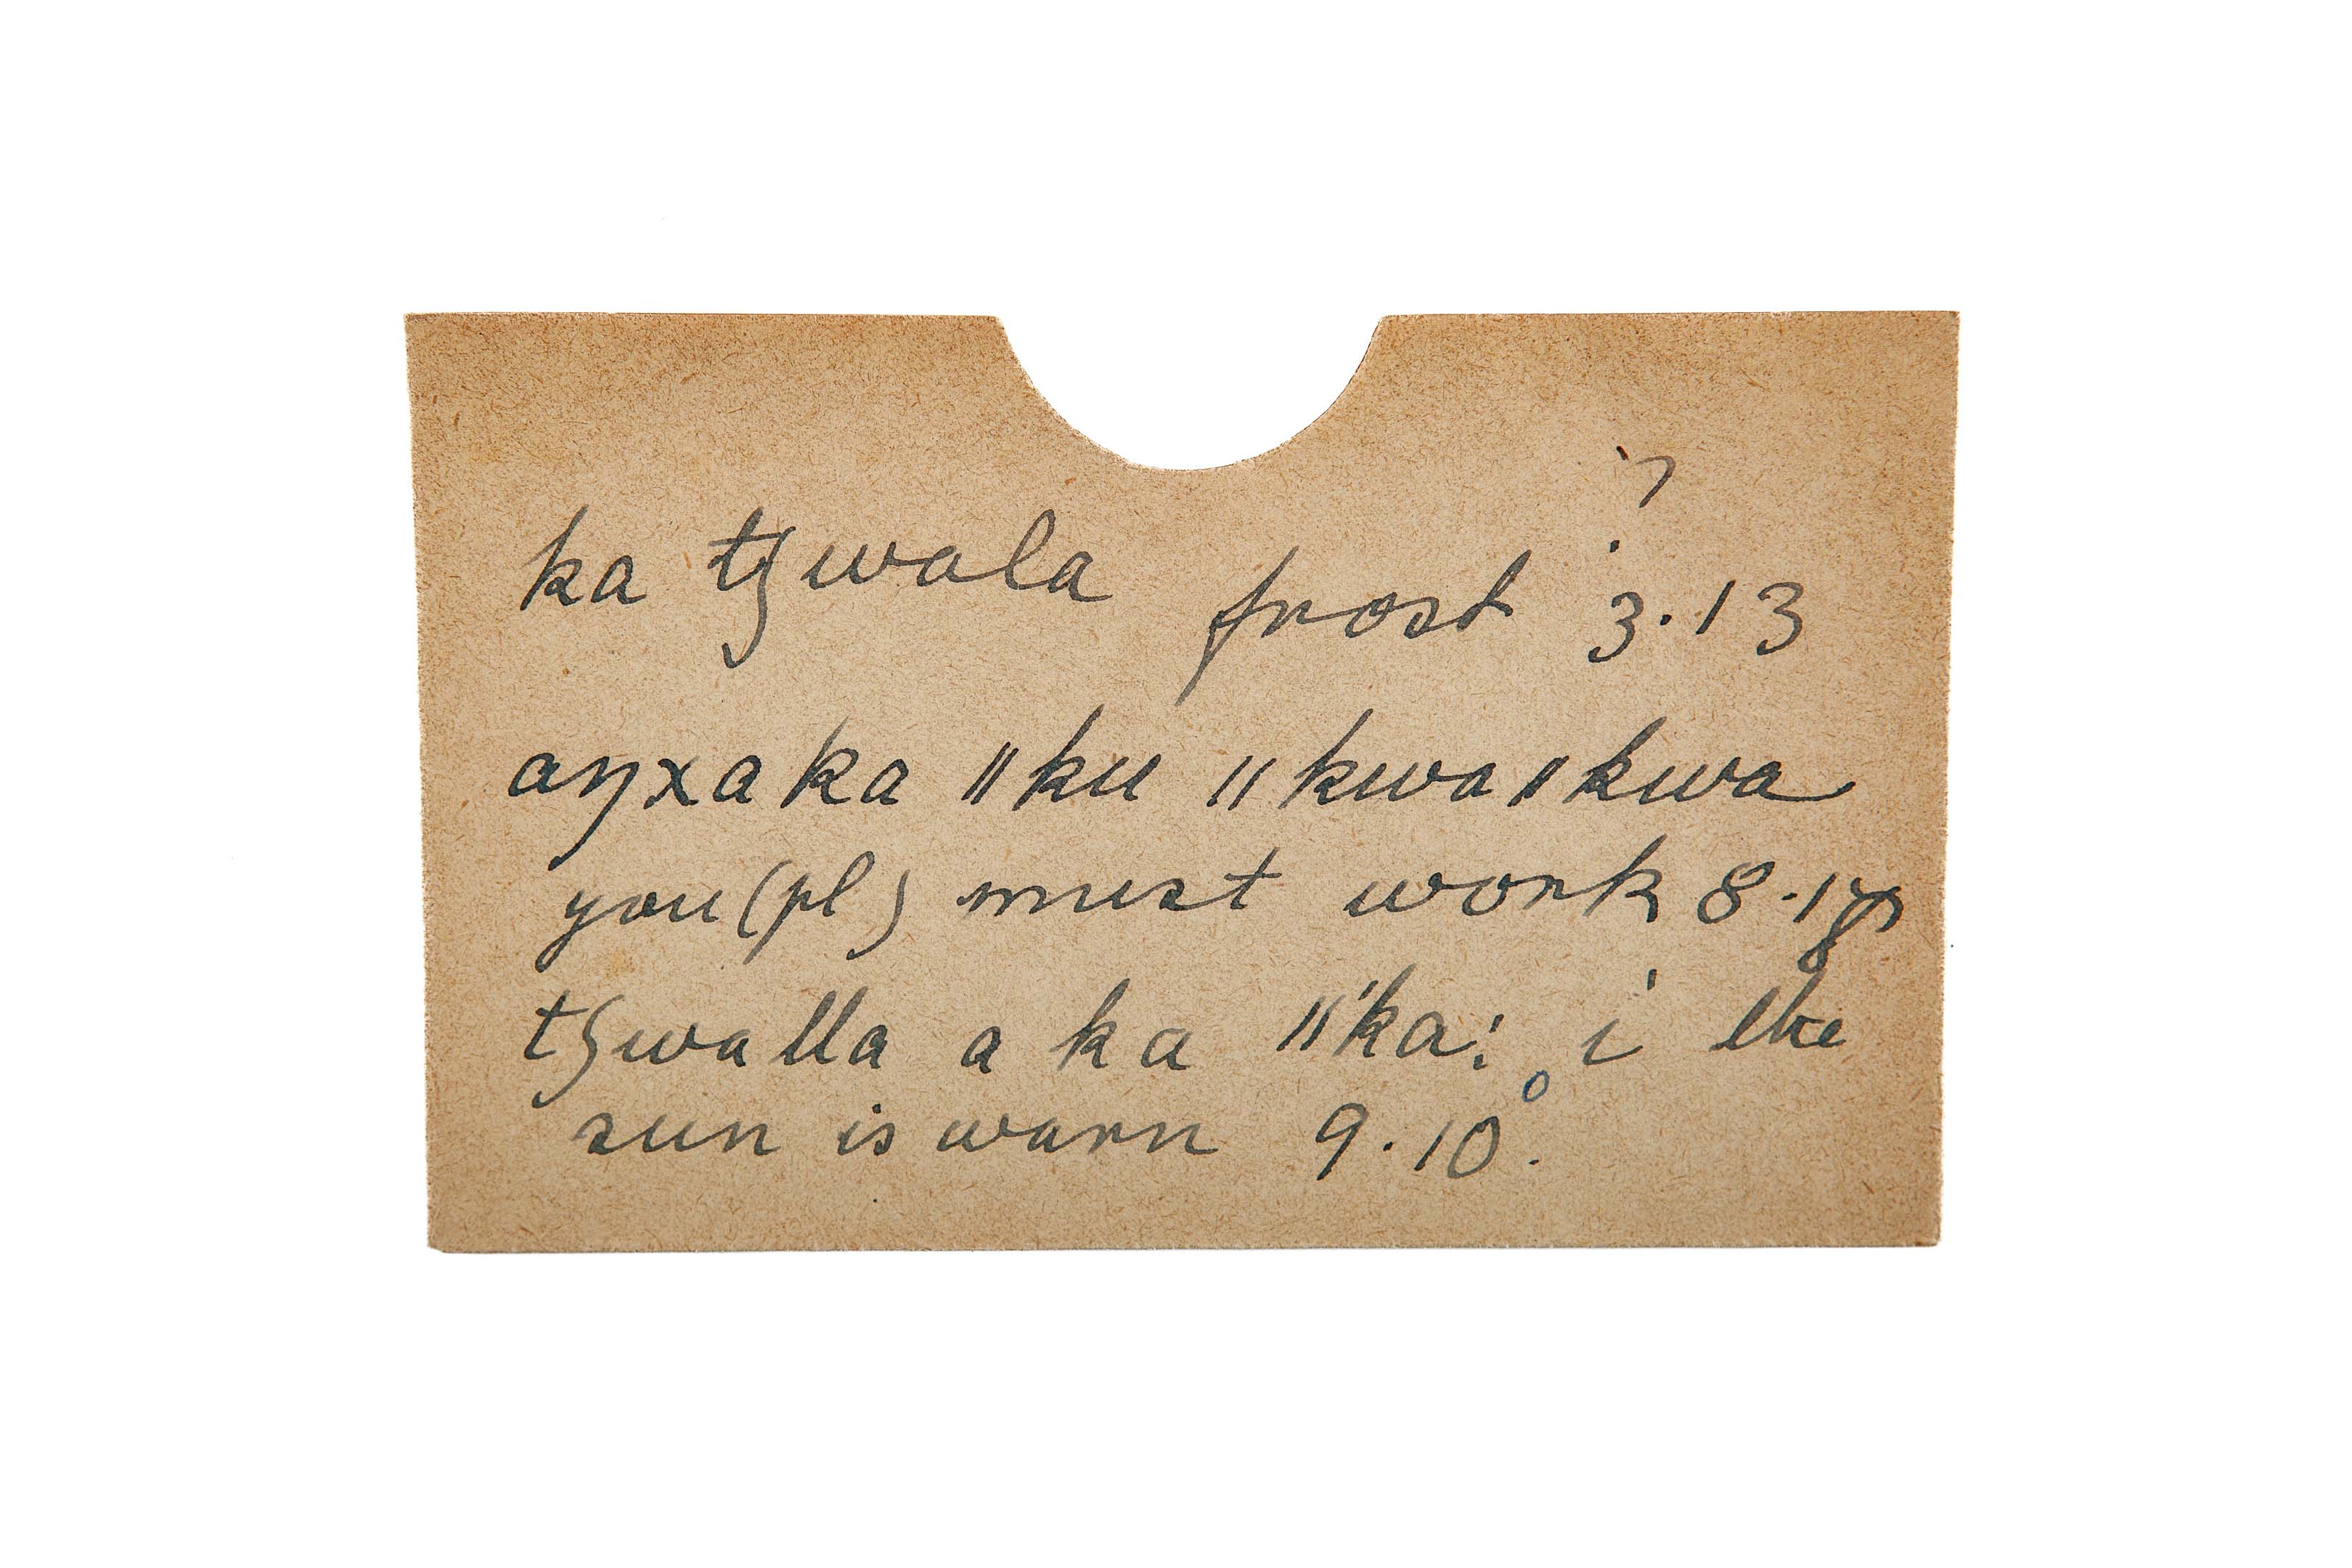 ka tʒwala frost ? 3.13
aŋxa ka ǁku ǁkwaǁkwa
you (pl) must work 8.18
tʒwalla a ka ǁ'ka: i the
sun is warn 9.10.